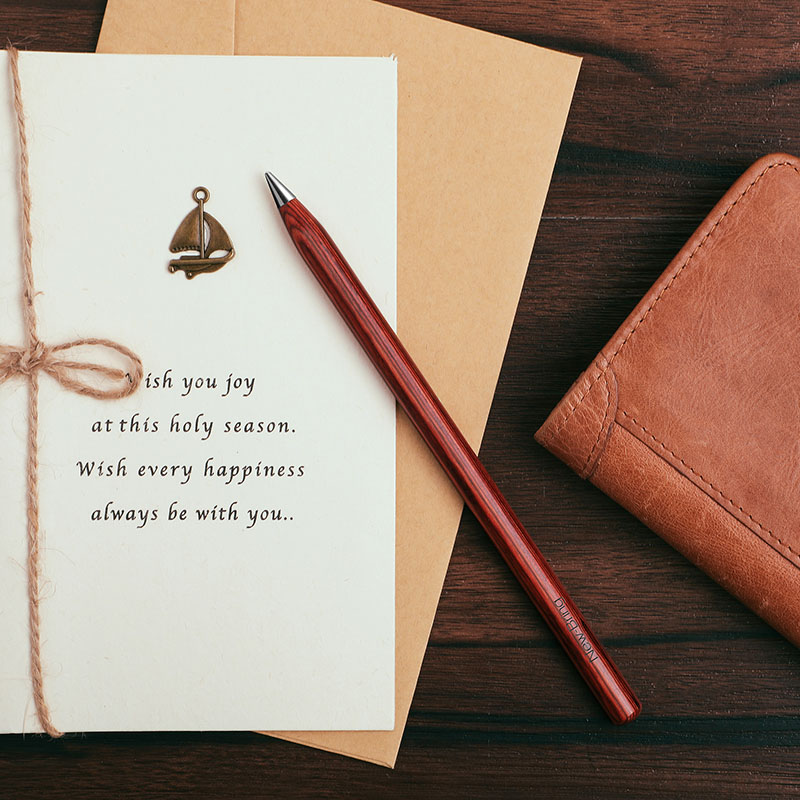 Wish you joy
at this holy season.
Wish every happiness
always be with you..
New-Bring